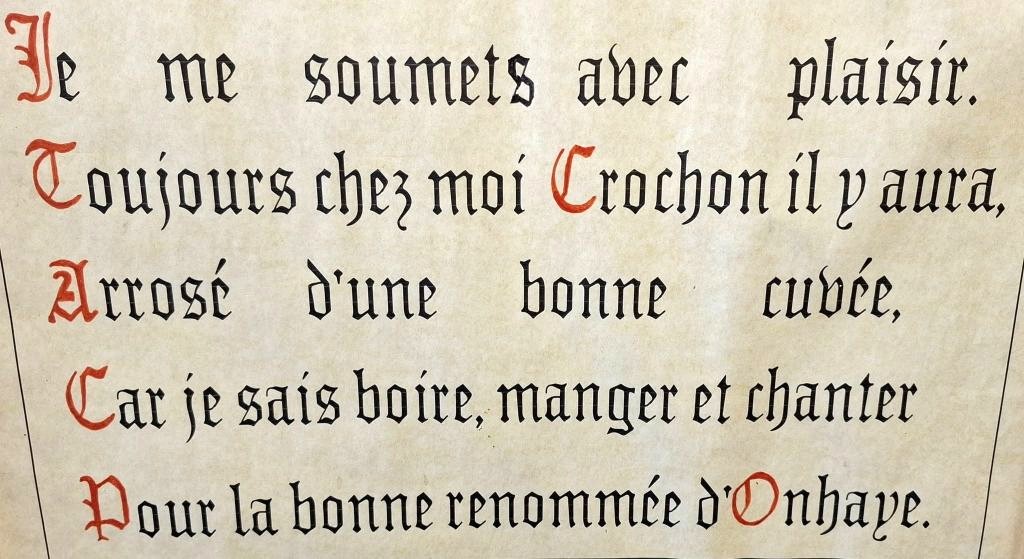 Je me soumets avec plaisir.
Toujours chez moi Crochon il y aura,
Arrosé d'une bonne cuvée,
Car je sais boire, manger et chanter
Pour la bonne renommée d'Onhaye.